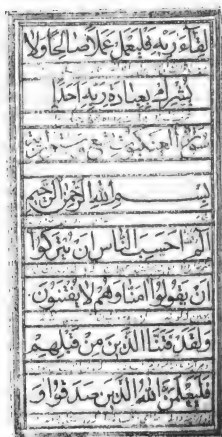 لِقَاءَ رَبِّهِ فَلْيَعْمَلْ عَمَلًا صَالِحًا وَلَا
يُشْرِكْ بِعِبَادَةِ رَبِّهِ أَحَدًا
العنكبوت
بِسْمِ اللَّهِ الرَّحْمَنِ الرَّحِيمِ
الم أَحَسِبَ النَّاسُ أَنْ يُتْرَكُوا
أَنْ يَقُولُوا آمَنَّا وَهُمْ لَا يُفْتَنُونَ
وَلَقَدْ فَتَنَّا الَّذِينَ مِنْ قَبْلِهِمْ
فَلَيَعْلَمَنَّ اللَّهُ الَّذِينَ صَدَقُوا وَ